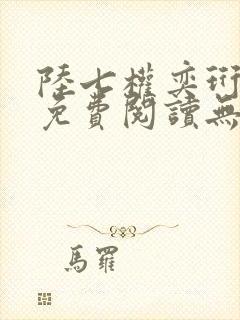 陸七權奕珩
免費閱讀無
馬羅